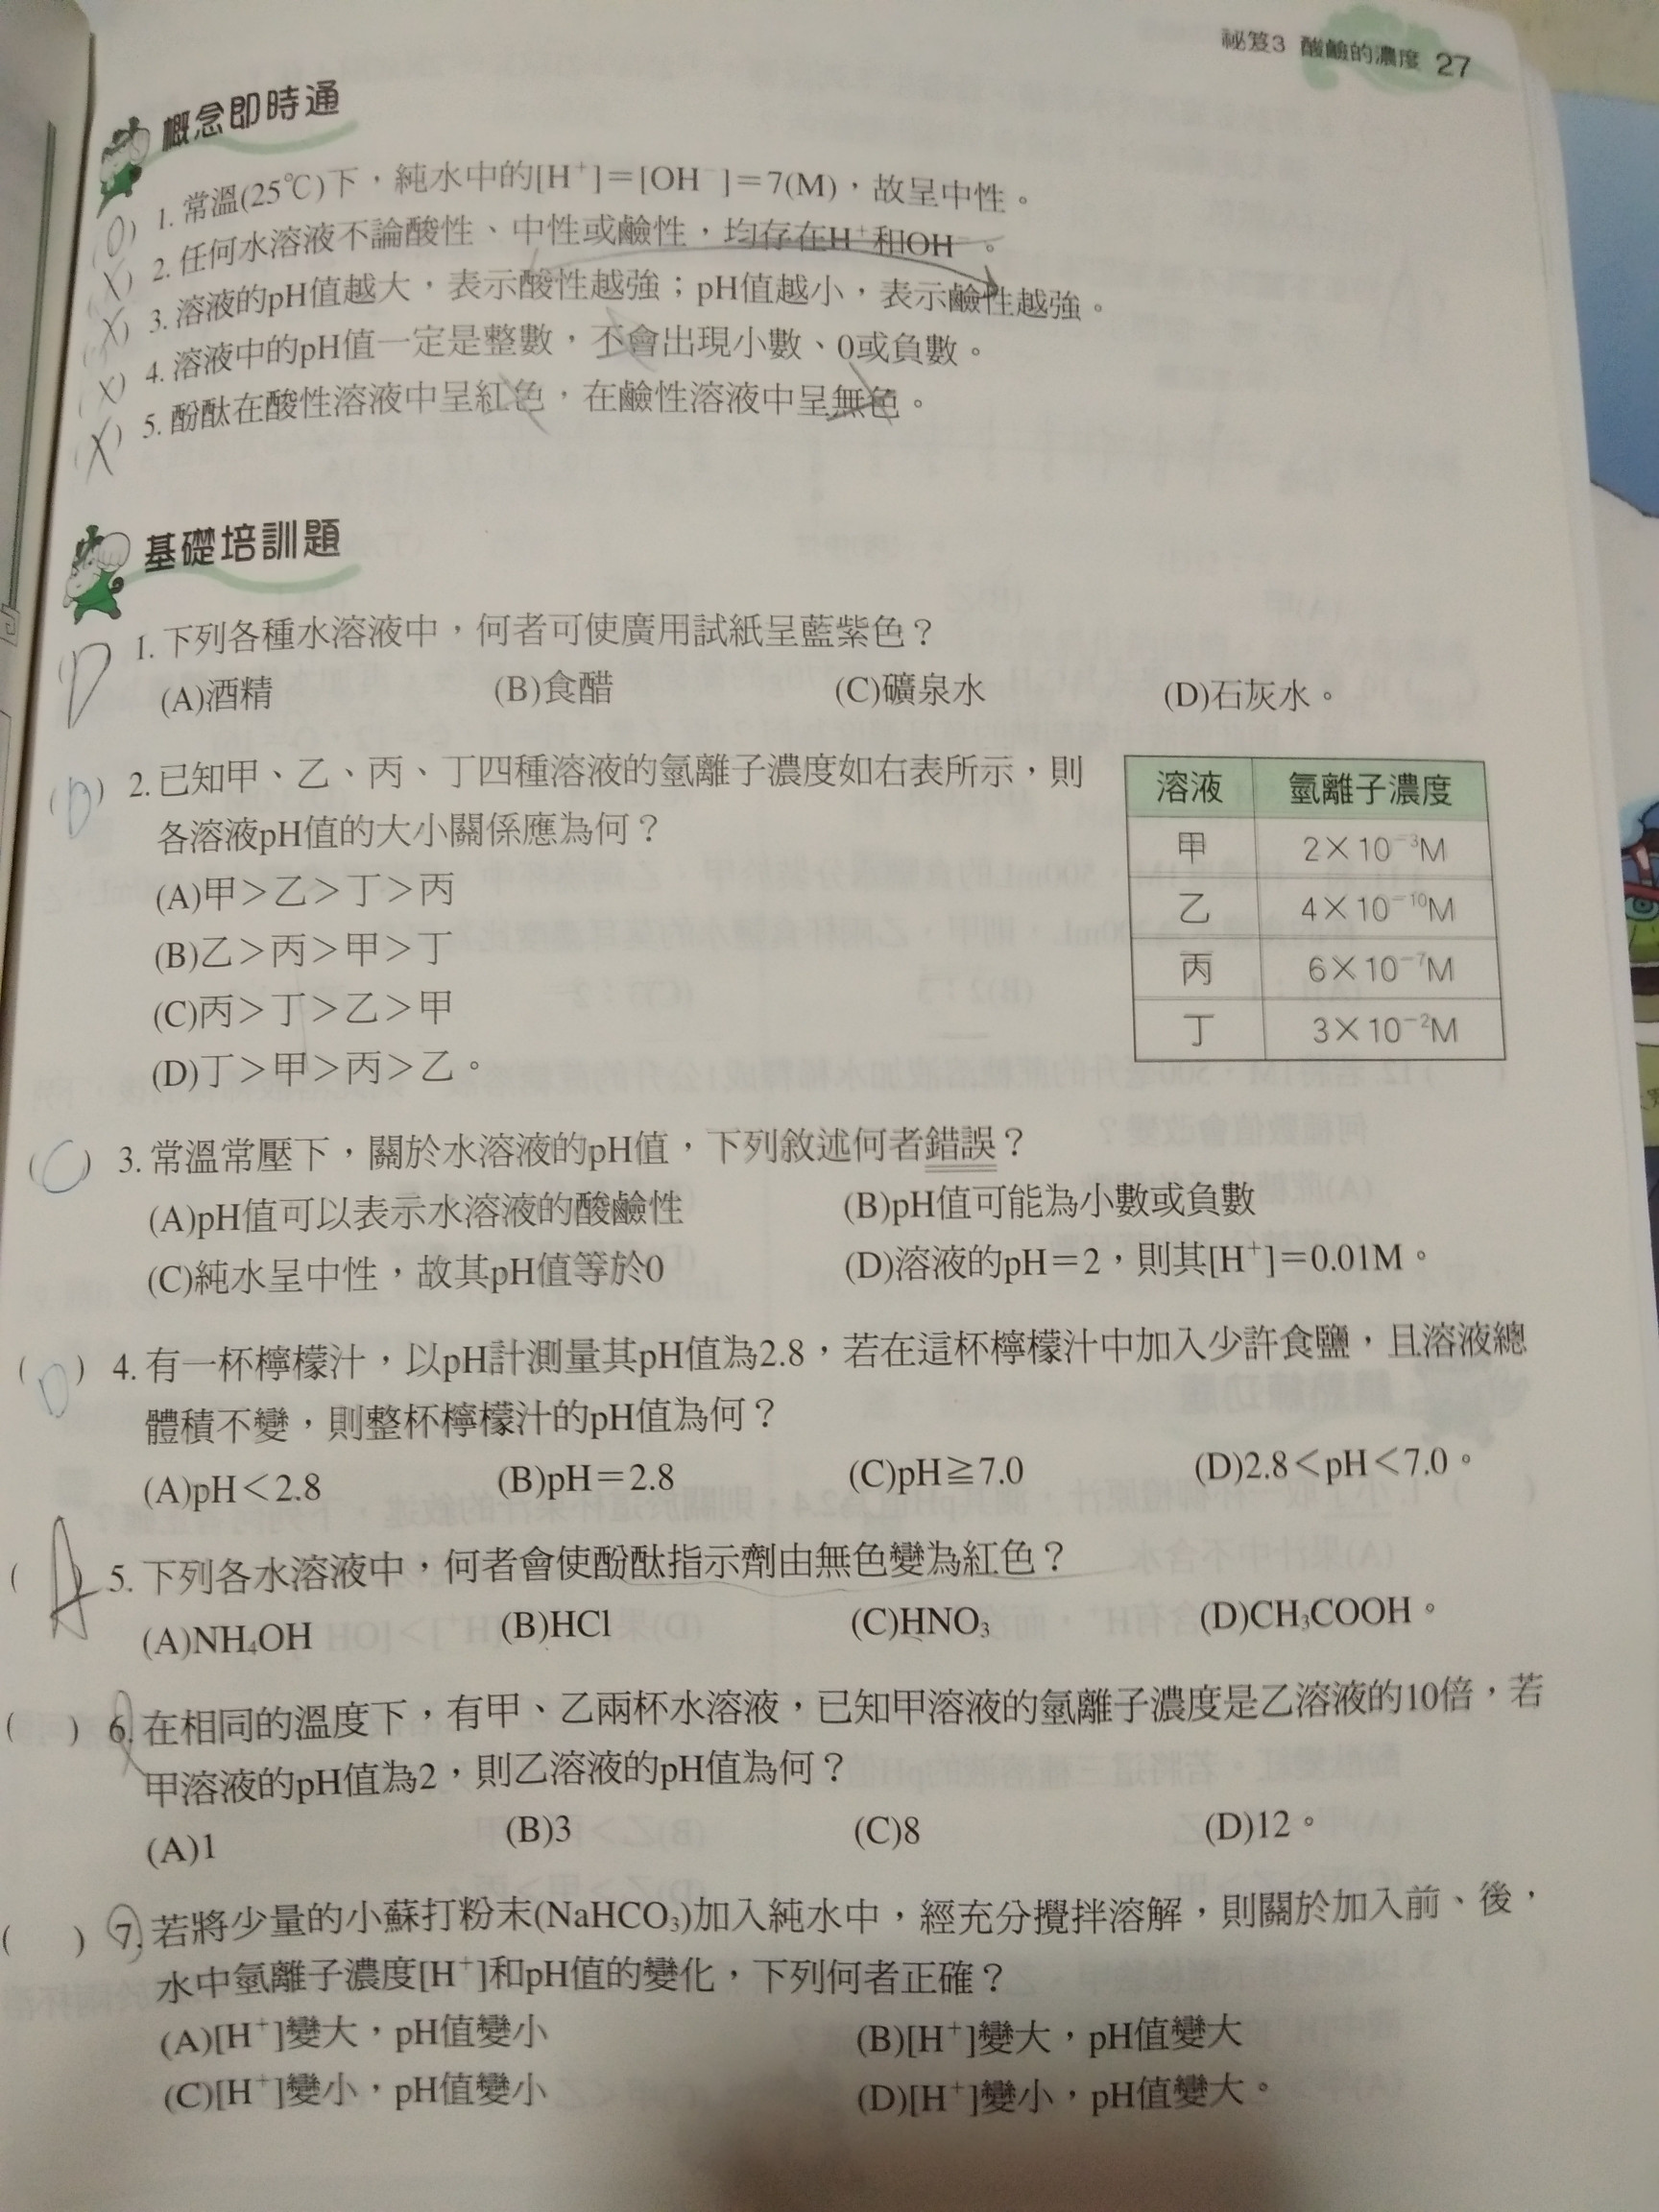 祕笈3 酸鹼的濃度 27
概念即時通
(O) 1. 常溫(25℃)下，純水中的[H⁺]＝[OH⁻]＝7(M)，故呈中性。
(X) 2. 任何水溶液不論酸性、中性或鹼性，均存在H⁺和OH⁻。
(X) 3. 溶液的pH值越大，表示酸性越強；pH值越小，表示鹼性越強。
(X) 4. 溶液中的pH值一定是整數，不會出現小數、0或負數。
(X) 5. 酚酞在酸性溶液中呈紅色，在鹼性溶液中呈無色。
基礎培訓題
D 1. 下列各種水溶液中，何者可使廣用試紙呈藍紫色？
(A)酒精 (B)食醋 (C)礦泉水 (D)石灰水。
( ) 2. 已知甲、乙、丙、丁四種溶液的氫離子濃度如右表所示，則
各溶液pH值的大小關係應為何？
(A)甲＞乙＞丁＞丙
(B)乙＞丙＞甲＞丁
(C)丙＞丁＞乙＞甲
(D)丁＞甲＞丙＞乙。
溶液 氫離子濃度
甲 2×10⁻³M
乙 4×10⁻¹⁰M
丙 6×10⁻⁷M
丁 3×10⁻²M
(C) 3. 常溫常壓下，關於水溶液的pH值，下列敘述何者錯誤？
(A)pH值可以表示水溶液的酸鹼性 (B)pH值可能為小數或負數
(C)純水呈中性，故其pH值等於0 (D)溶液的pH＝2，則其[H⁺]＝0.01M。
(D) 4. 有一杯檸檬汁，以pH計測量其pH值為2.8，若在這杯檸檬汁中加入少許食鹽，且溶液總
體積不變，則整杯檸檬汁的pH值為何？
(A)pH＜2.8 (B)pH＝2.8 (C)pH≧7.0 (D)2.8＜pH＜7.0。
(A) 5. 下列各水溶液中，何者會使酚酞指示劑由無色變為紅色？
(A)NH₄OH (B)HCl (C)HNO₃ (D)CH₃COOH。
( ) 6. 在相同的溫度下，有甲、乙兩杯水溶液，已知甲溶液的氫離子濃度是乙溶液的10倍，若
甲溶液的pH值為2，則乙溶液的pH值為何？
(A)1 (B)3 (C)8 (D)12。
( ) 7. 若將少量的小蘇打粉末(NaHCO₃)加入純水中，經充分攪拌溶解，則關於加入前、後，
水中氫離子濃度[H⁺]和pH值的變化，下列何者正確？
(A)[H⁺]變大，pH值變小 (B)[H⁺]變大，pH值變大
(C)[H⁺]變小，pH值變小 (D)[H⁺]變小，pH值變大。